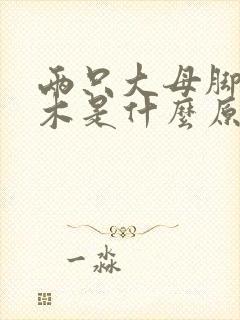 两只大母脚
木是什麼原
一淼